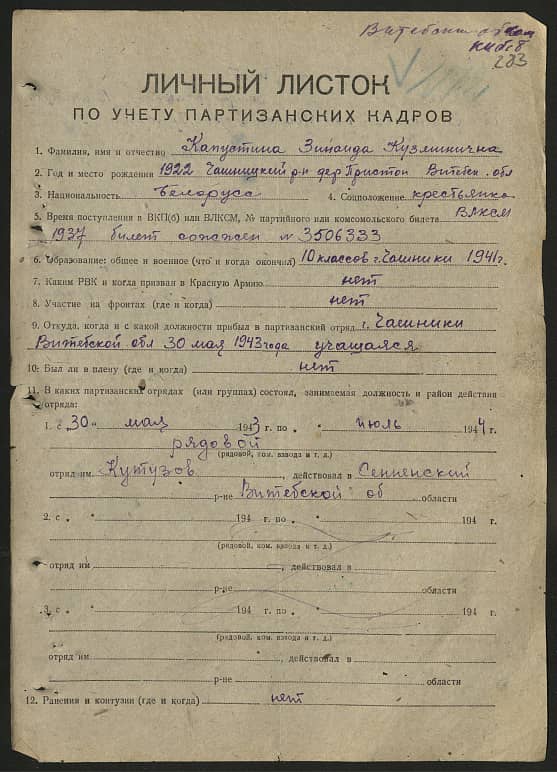 Витебская обл
283
ЛИЧНЫЙ ЛИСТОК
ПО УЧЕТУ ПАРТИЗАНСКИХ КАДРОВ
1. Фамилия, имя и отчество Капустина Зинаида Кузьминична
2. Год и место рождения 1922 Чашницкий р-н дер Пристои Витеб. обл
3. Национальность Белоруса 4. Соцположение крестьянка
5. Время поступления в ВКП(б) или ВЛКСМ, № партийного или комсомольского билета ВЛКСМ
1937 билет сожжен № 3506333
6. Образование: общее и военное (что и когда окончил) 10 классов г. Чашники 1941 г.
7. Каким РВК и когда призван в Красную Армию нет
8. Участие на фронтах (где и когда) нет
9. Откуда, когда и с какой должности прибыл в партизанский отряд г. Чашники
Витебской обл 30 мая 1943 года учащаяся
10. Был ли в плену (где и когда) нет
11. В каких партизанских отрядах (или группах) состоял, занимаемая должность и район действия
отряда:
1. с „30“ мая 1943 г. по „ “ июль 1944 г.
рядовой
(рядовой, ком. взвода и т. д.)
отряд им Кутузов, действовал в Сенненский
р-не Витебской об области
2. с „ “ 194 г. по „ “ 194 г.
(рядовой, ком. взвода и т. д.)
отряд им , действовал в
р-не области
3. с „ “ 194 г. по „ “ 194 г.
(рядовой, ком. взвода и т. д.)
отряд им , действовал в
р-не области
12. Ранения и контузии (где и когда) нет